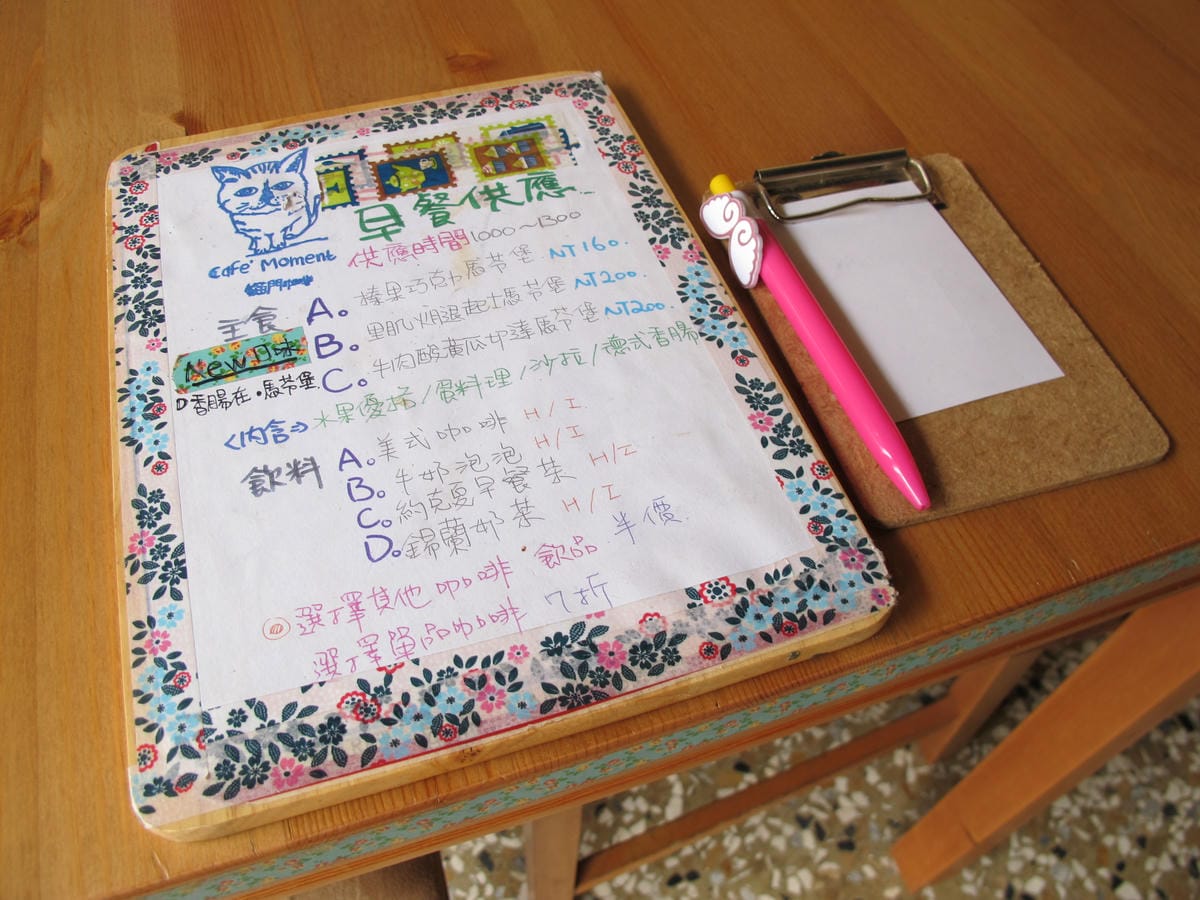 早餐供應
café Moment
供應時間1000~1300
主食
A. 榛果巧克力馬芬堡 NT160.
B. 里肌火腿起士馬芬堡 NT200.
C. 牛肉酸黃瓜切達馬芬堡 NT200.
New口味
D香腸在•馬芬堡
<內含=>水果優格/蛋料理/沙拉/德式香腸
飲料
A. 美式咖啡 H/I
B. 牛奶泡泡 H/I
C. 約克夏早餐茶 H/I
D. 錫蘭奶茶 H/I
選擇其他咖啡 飲品 半價
選擇單品咖啡 7折